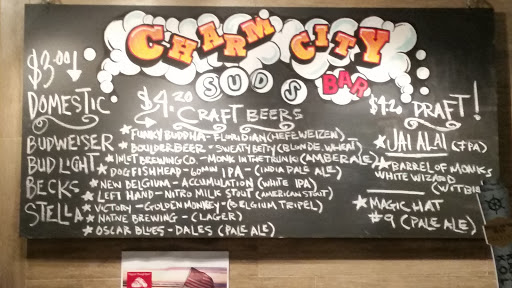 CHARM CITY
SUDS BAR
$3.00↓
DOMESTIC
BUDWEISER
BUD LIGHT
BECKS
STELLA
$4.20
CRAFT BEERS
★FUNKY BUDDHA - FLORIDIAN (HEFEWEIZEN)
★BOULDER BEER - SWEATY BETTY (BLONDE. WHEAT)
★INLET BREWING CO. - MONK IN THE TRUNK (AMBER ALE)
★DOGFISHEAD - 60 MIN IPA - (INDIA PALE ALE)
★NEW BELGIUM - ACCUMULATION (WHITE IPA)
★LEFT HAND - NITRO MILK STOUT (AMERICAN STOUT)
★VICTORY - GOLDEN MONKEY - (BELGIUM TRIPEL)
★NATIVE BREWING - (LAGER)
★OSCAR BLUES - DALES (PALE ALE)
$4.20 DRAFT!
★JAI ALAI (IPA)
★BARREL OF MONKS
WHITE WIZARD
(WITBIER)
★MAGIC HAT
#9 (PALE ALE)